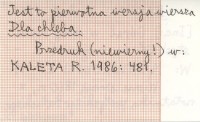 Jest to pierwotna wersja wiersza
Dla chleba.
Przedruk (niewierny!) w:
KALETA R. 1986: 481.